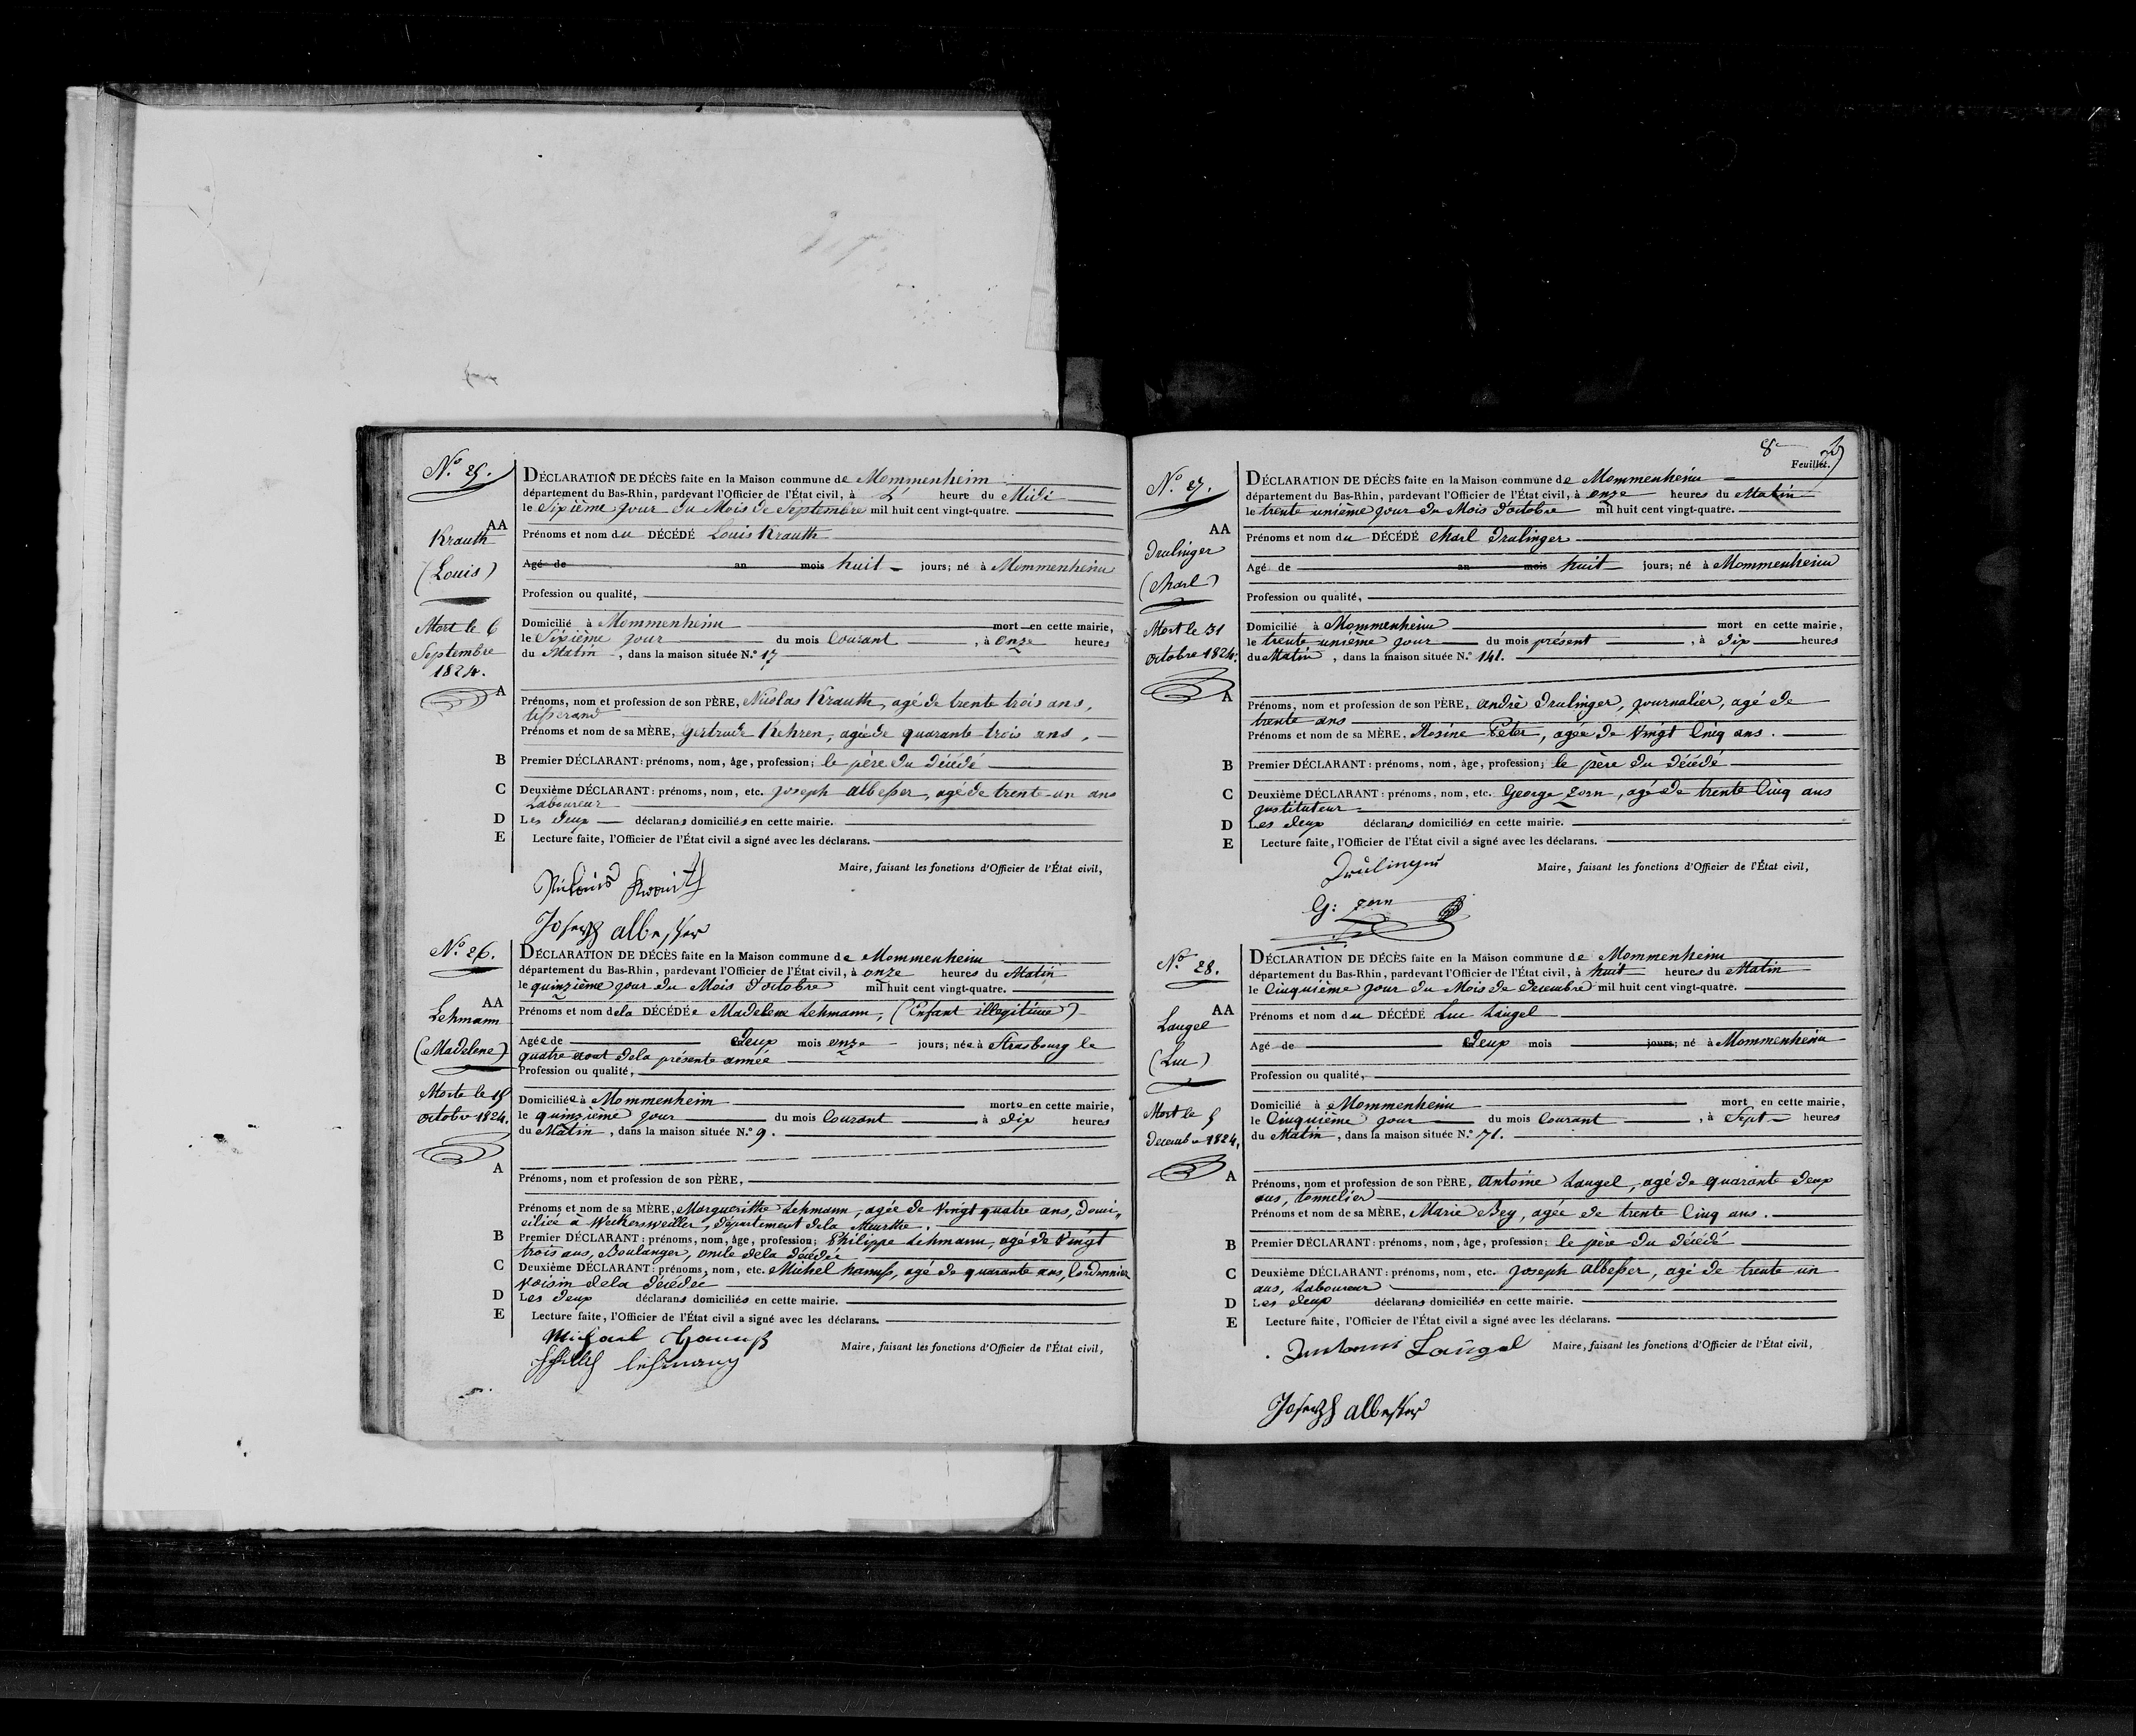 N.º 25.
Krauth
(Louis)
Mort le 6
Septembre
1824.
AA
A
B
C
D
E
DÉCLARATION DE DÉCÈS faite en la Maison commune de Mommenheim
département du Bas-Rhin, pardevant l'Officier de l'État civil, à L' heure du Midi
le Sixième jour du Mois de Septembre mil huit cent vingt-quatre.
Prénoms et nom du DÉCÉDÉ Louis Krauth
Agé de an mois huit jours; né à Mommenheim
Profession ou qualité,
Domicilié à Mommenheim mort en cette mairie,
le Sixième jour du mois Courant, à Onze heures
du Matin, dans la maison située N.º 17
Prénoms, nom et profession de son PÈRE, Nicolas Krauth, agé de trente trois ans,
tisserand
Prénoms et nom de sa MÈRE, Gertrude Kehren, agée de quarante trois ans,
Premier DÉCLARANT: prénoms, nom, âge, profession; le père du décédé
Deuxième DÉCLARANT: prénoms, nom, etc. Joseph Albesser, agé de trente-un ans
Laboureur
Les deux déclarans domiciliés en cette mairie.
Lecture faite, l'Officier de l'État civil a signé avec les déclarans.
Maire, faisant les fonctions d'Officier de l'État civil,
Joseph albesser
N.º 26.
Lehmann
(Madelene)
Morte le 15
octobre 1824.
AA
A
B
C
D
E
DÉCLARATION DE DÉCÈS faite en la Maison commune de Mommenheim
département du Bas-Rhin, pardevant l'Officier de l'État civil, à onze heures du Matin
le quinzième jour du Mois d'octobre mil huit cent vingt-quatre.
Prénoms et nom dela DÉCÉDÉe Madelene Lehmann, (Enfant illegitime)
Agée de deux mois onze jours; née à Strasbourg le
quatre aout dela présente année
Profession ou qualité,
Domiciliée à Mommenheim morte en cette mairie,
le quinzième jour du mois Courant à dix heures
du Matin, dans la maison située N.º 9.
Prénoms, nom et profession de son PÈRE,
Prénoms et nom de sa MÈRE, Margueritte Lehmann, agée de Vingt quatre ans, domi„
ciliée à Weckersweiller, département dela Meurthe.
Premier DÉCLARANT: prénoms, nom, âge, profession; Philippe Lehmann, agé de Vingt
trois ans, Boulanger, oncle dela décédée
Deuxième DÉCLARANT: prénoms, nom, etc. Michel hamss, agé de quarante ans, Cordonnier
voisin dela décédée
Les deux déclarans domiciliés en cette mairie.
Lecture faite, l'Officier de l'État civil a signé avec les déclarans.
Maire, faisant les fonctions d'Officier de l'État civil,
8
Feuillet.
N.º 27.
Drulinger
(Charl)
Mort le 31
octobre 1824.
AA
A
B
C
D
E
DÉCLARATION DE DÉCÈS faite en la Maison commune de Mommenheim
département du Bas-Rhin, pardevant l'Officier de l'État civil, à onze heures du Matin
le trente unième jour du Mois d'octobre mil huit cent vingt-quatre.
Prénoms et nom du DÉCÉDÉ Charl Drulinger
Agé de an mois huit jours; né à Mommenheim
Profession ou qualité,
Domicilié à Mommenheim mort en cette mairie,
le trente unième jour du mois présent, à dix heures
du Matin, dans la maison située N.º 141.
Prénoms, nom et profession de son PÈRE, André Drulinger, journalier, agé de
trente ans
Prénoms et nom de sa MÈRE, Rosine Peter, agée de Vingt Cinq ans.
Premier DÉCLARANT: prénoms, nom, âge, profession; le père du décédé
Deuxième DÉCLARANT: prénoms, nom, etc. George Zorn, agé de trente Cinq ans
Jnstituteur
Les deux déclarans domiciliés en cette mairie.
Lecture faite, l'Officier de l'État civil a signé avec les déclarans.
Maire, faisant les fonctions d'Officier de l'État civil,
G: zorn
N.º 28.
Laugel
(Luc)
Mort le 5
decembre 1824.
AA
A
B
C
D
E
DÉCLARATION DE DÉCÈS faite en la Maison commune de Mommenheim
département du Bas-Rhin, pardevant l'Officier de l'État civil, à huit heures du Matin
le Cinquième jour du Mois de decembre mil huit cent vingt-quatre.
Prénoms et nom du DÉCÉDÉ Luc Laugel
Agé de deux mois jours; né à Mommenheim
Profession ou qualité,
Domicilié à Mommenheim mort en cette mairie,
le Cinquième jour du mois Courant, à Sept heures
du Matin, dans la maison située N.º 71.
Prénoms, nom et profession de son PÈRE, Antoine Laugel, agé de quarante deux
ans, tonnelier
Prénoms et nom de sa MÈRE, Marie Bey, agée de trente Cinq ans.
Premier DÉCLARANT: prénoms, nom, âge, profession; le père du décédé
Deuxième DÉCLARANT: prénoms, nom, etc. Joseph Albesser, agé de trente un
ans, Laboureur
Les deux déclarans domiciliés en cette mairie.
Lecture faite, l'Officier de l'État civil a signé avec les déclarans.
Maire, faisant les fonctions d'Officier de l'État civil,
Laugel
Joseph albesser